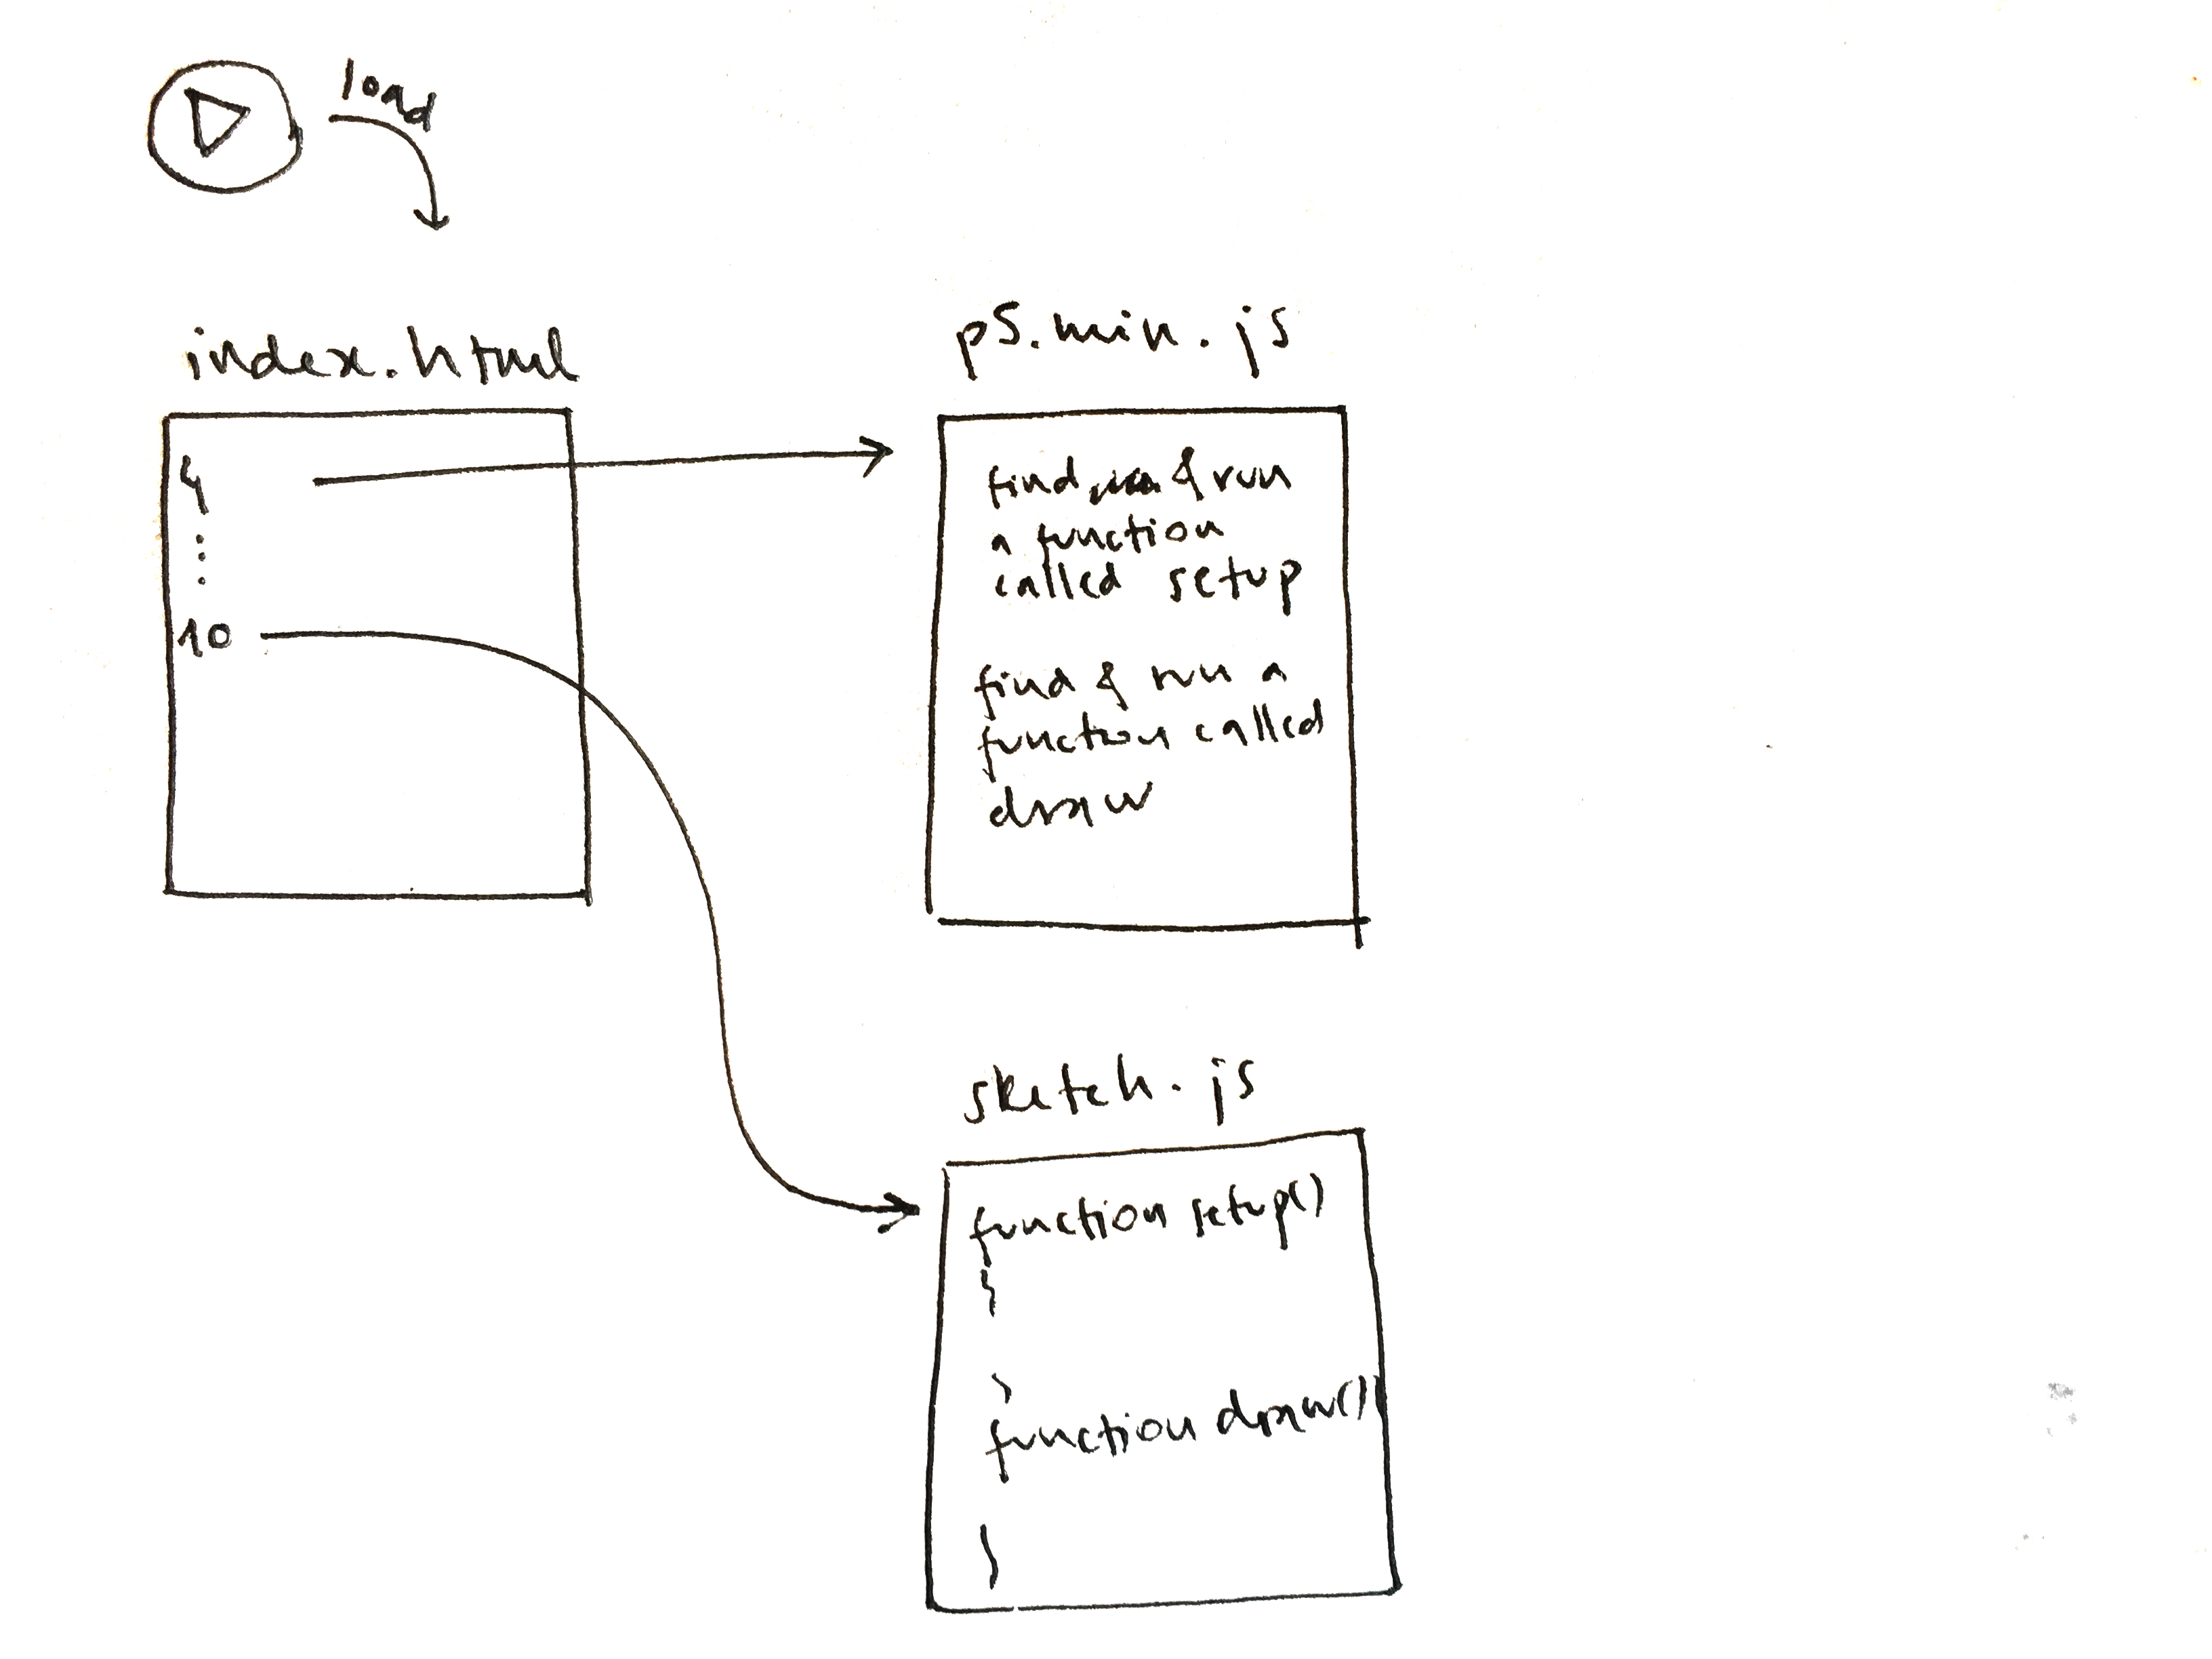 load
index.html
4
10
p5.min.js
find & run
a function
called setup
find & run a
function called
draw
sketch.js
function setup()
{
}
function draw(){
}